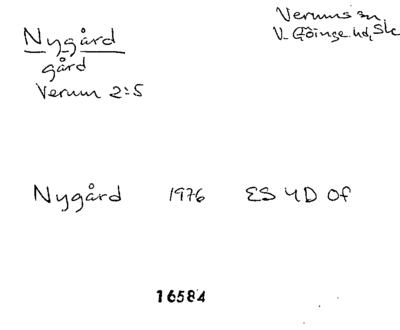 Nygård
gård
Verum 2:5
Verums sn,
V. Göinge hd, Sk
Nygård 1976 ES 4D Of
16584